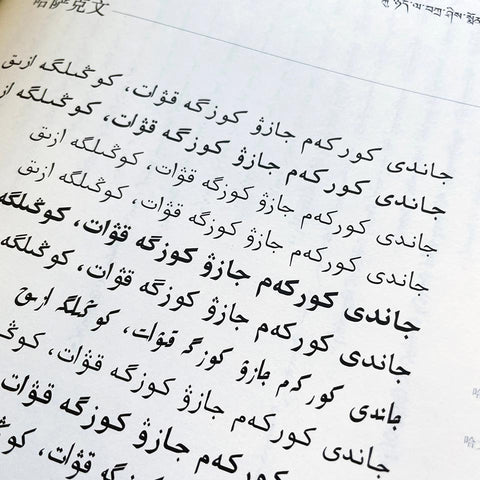 哈萨克文
جاندى كوركەم جازۋ كوزگە قۋات، كوڭىلگە ازىق
جاندى كوركەم جازۋ كوزگە قۋات، كوڭىلگە از
جاندى كوركەم جازۋ كوزگە قۋات، كوڭىلگە ازىق
جاندى كوركەم جازۋ كوزگە قۋات، كوڭىلگە ازىق
جاندى كوركەم جازۋ كوزگە قۋات، كوڭىلگە
جاندى كوركەم جازۋ كوزگە قۋات، كوڭىلگە
جاندى كوركەم جازۋ كوزگە قۋات، كوڭىلگە ازىق
جاندى كوركەم جازۋ كوزگە قۋات، كوڭ
كوركەم جازۋ كوزگە قۋات
كوزگە قۋات، كوڭ